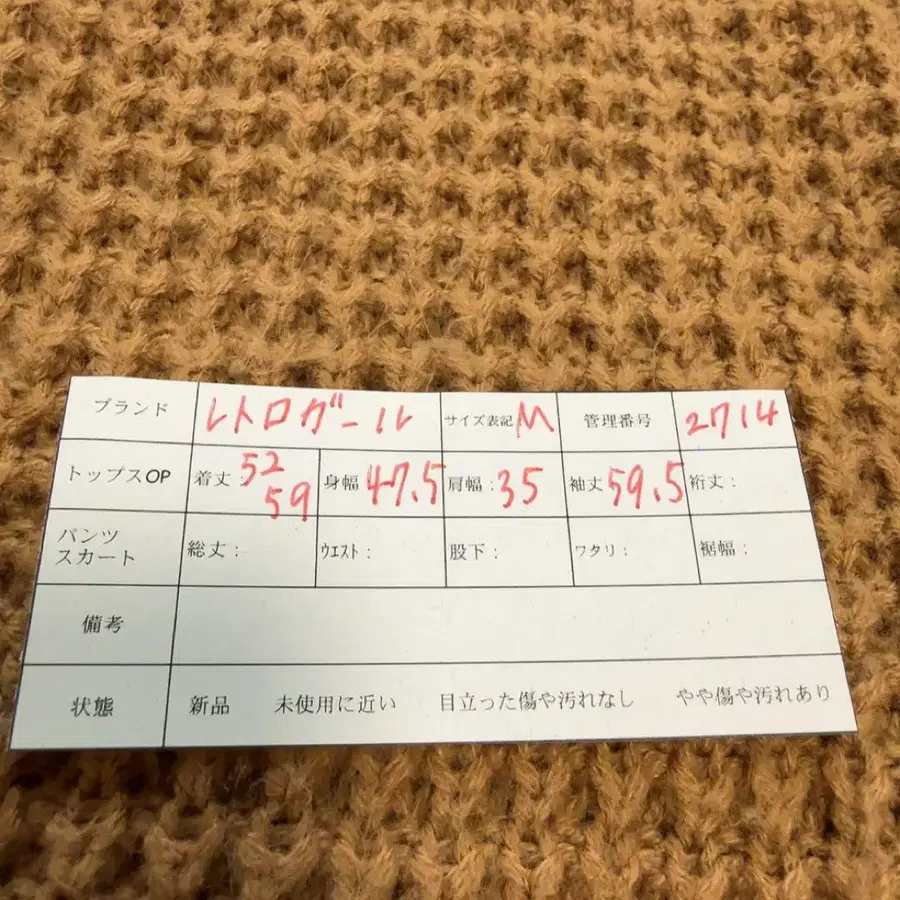 ブランド レトロガール サイズ表記 M 管理番号 2714
トップスOP 着丈:52 59 身幅 47.5 肩幅:35 袖丈 59.5 裄丈:
パンツ スカート 総丈: ウエスト: 股下: ワタリ: 裾幅:
備考
状態 新品 未使用に近い 目立った傷や汚れなし やや傷や汚れあり